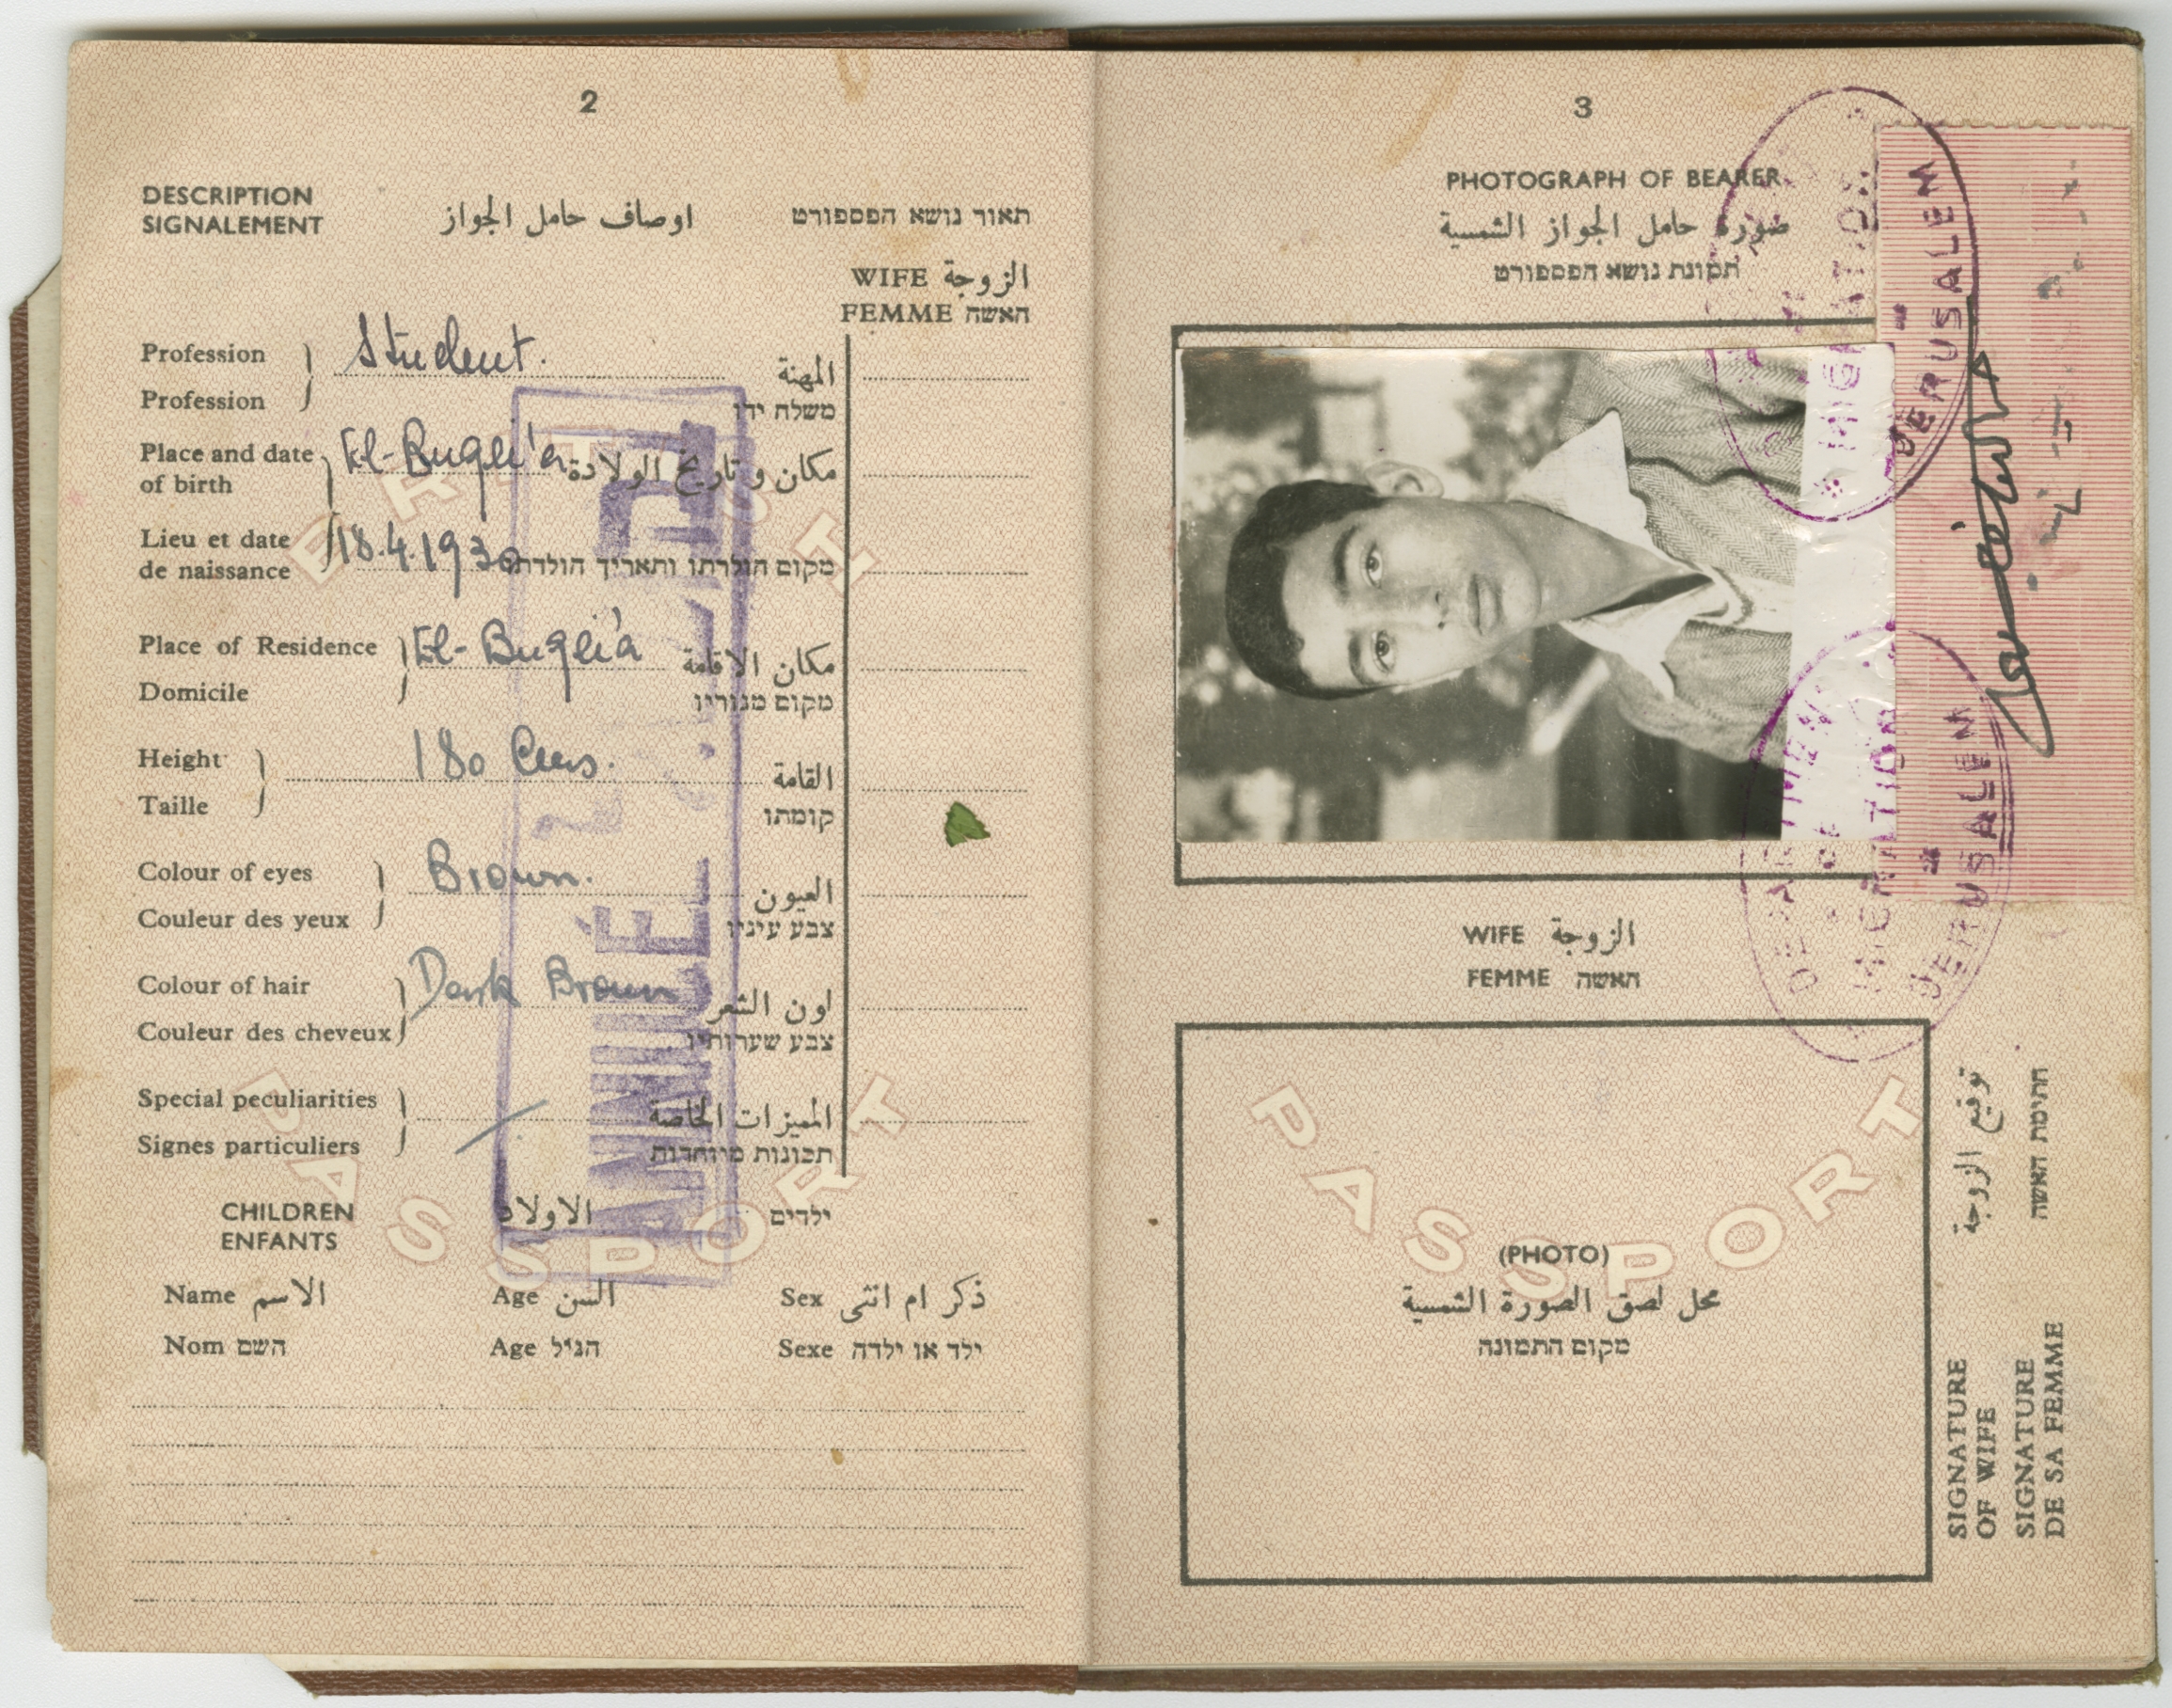 2
DESCRIPTION
SIGNALEMENT
اوصاف حامل الجواز
תאור נושא הפספורט
WIFE الزوجة
FEMME האשה
Profession
Profession
Student.
المهنة
משלח ידו
Place and date
of birth
Lieu et date
de naissance
El-Buqei'a
18.4.1930
مكان و تاريخ الولادة
מקום הולדתו ותאריך הולדתו
Place of Residence
Domicile
El-Buqei'a
مكان الاقامة
מקום מגוריו
Height
Taille
180 Cms.
القامة
קומתו
Colour of eyes
Couleur des yeux
Brown.
العيون
צבע עיניו
Colour of hair
Couleur des cheveux
Dark Brown
لون الشعر
צבע שערותיו
Special peculiarities
Signes particuliers
المميزات الخاصة
תכונות מיוחדות
ANNULÉ
CHILDREN
ENFANTS
الاولاد
ילדים
Name الاسم
Age السن
Sex ذكر ام انثى
Nom השם
Age הגיל
Sexe ילד או ילדה
PASSPORT
3
PHOTOGRAPH OF BEARER
صورة حامل الجواز الشمسية
תמונת נושא הפספורט
MIGRATION
JERUSALEM
DEPARTMENT
OF
MIGRATION
JERUSALEM
WIFE الزوجة
FEMME האשה
PASSPORT
(PHOTO)
محل لصق الصورة الشمسية
מקום התמונה
توقيع الزوجة
חתימת האשה
SIGNATURE
OF WIFE
SIGNATURE
DE SA FEMME